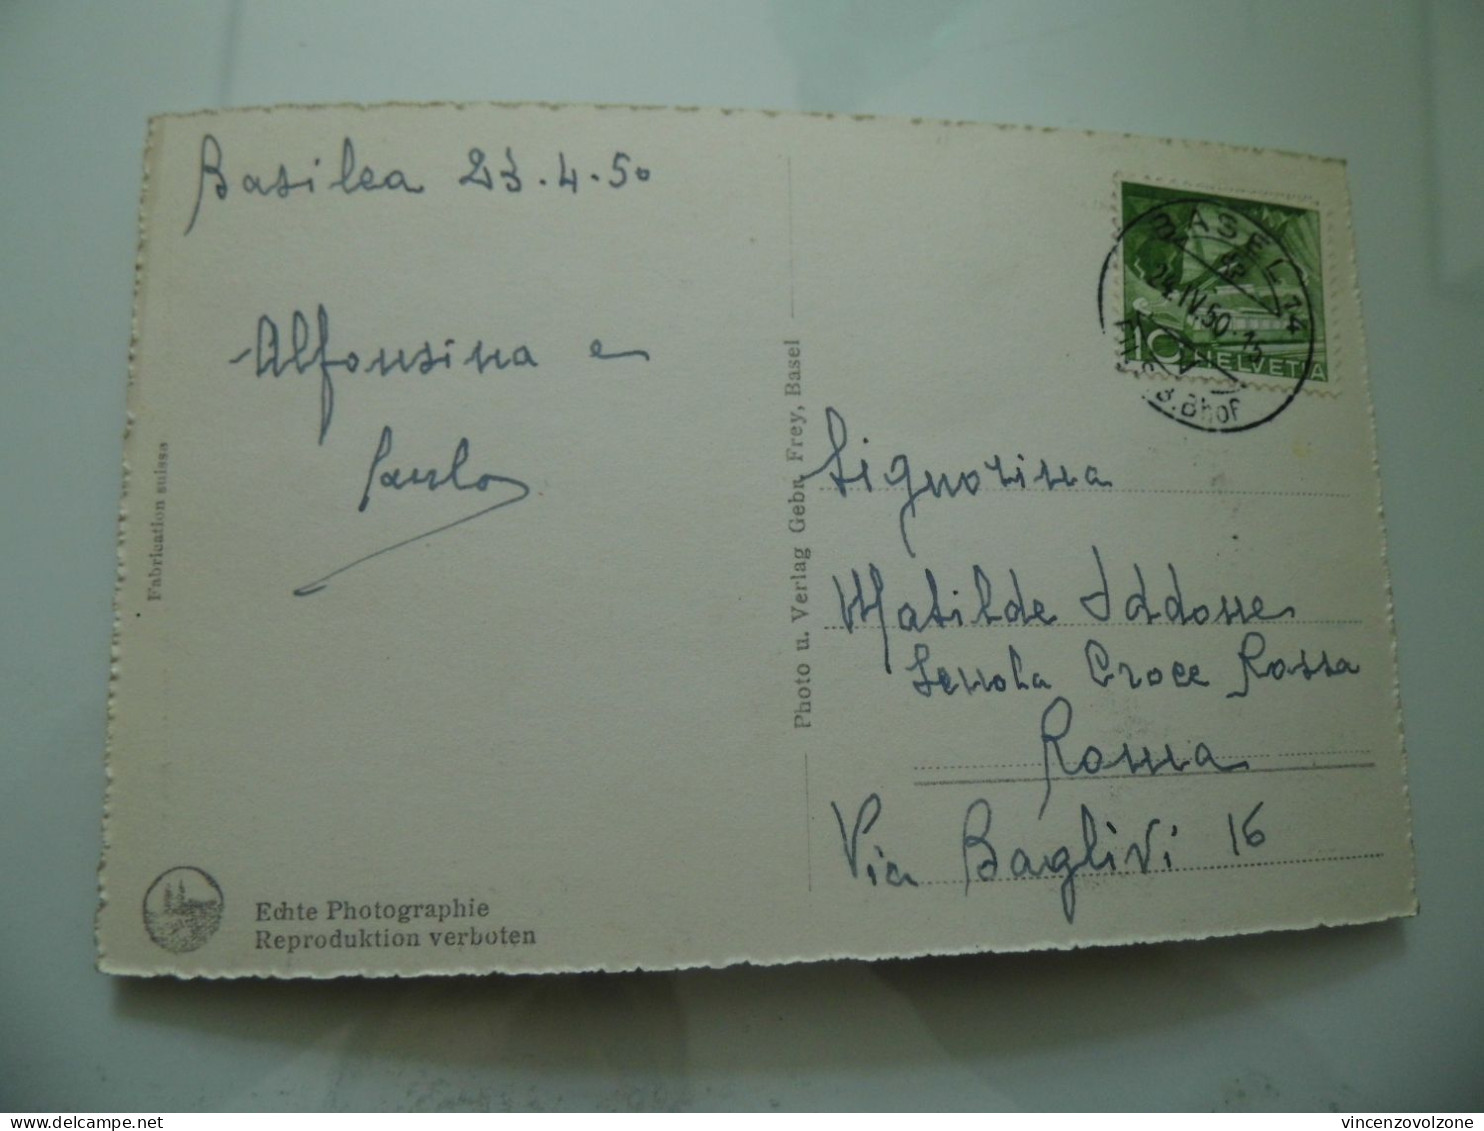 Basilea 23.4.50
Alfonsina e
Paulo
Fabrication suisse
Echte Photographie
Reproduktion verboten
Photo u. Verlag Gebr. Frey, Basel
BASEL 14
24.IV.50-15
10 HELVETIA
Signorina
Matilde
Scuola Croce Rossa
Roma
Via Baglivi 16
vincenzovolzone